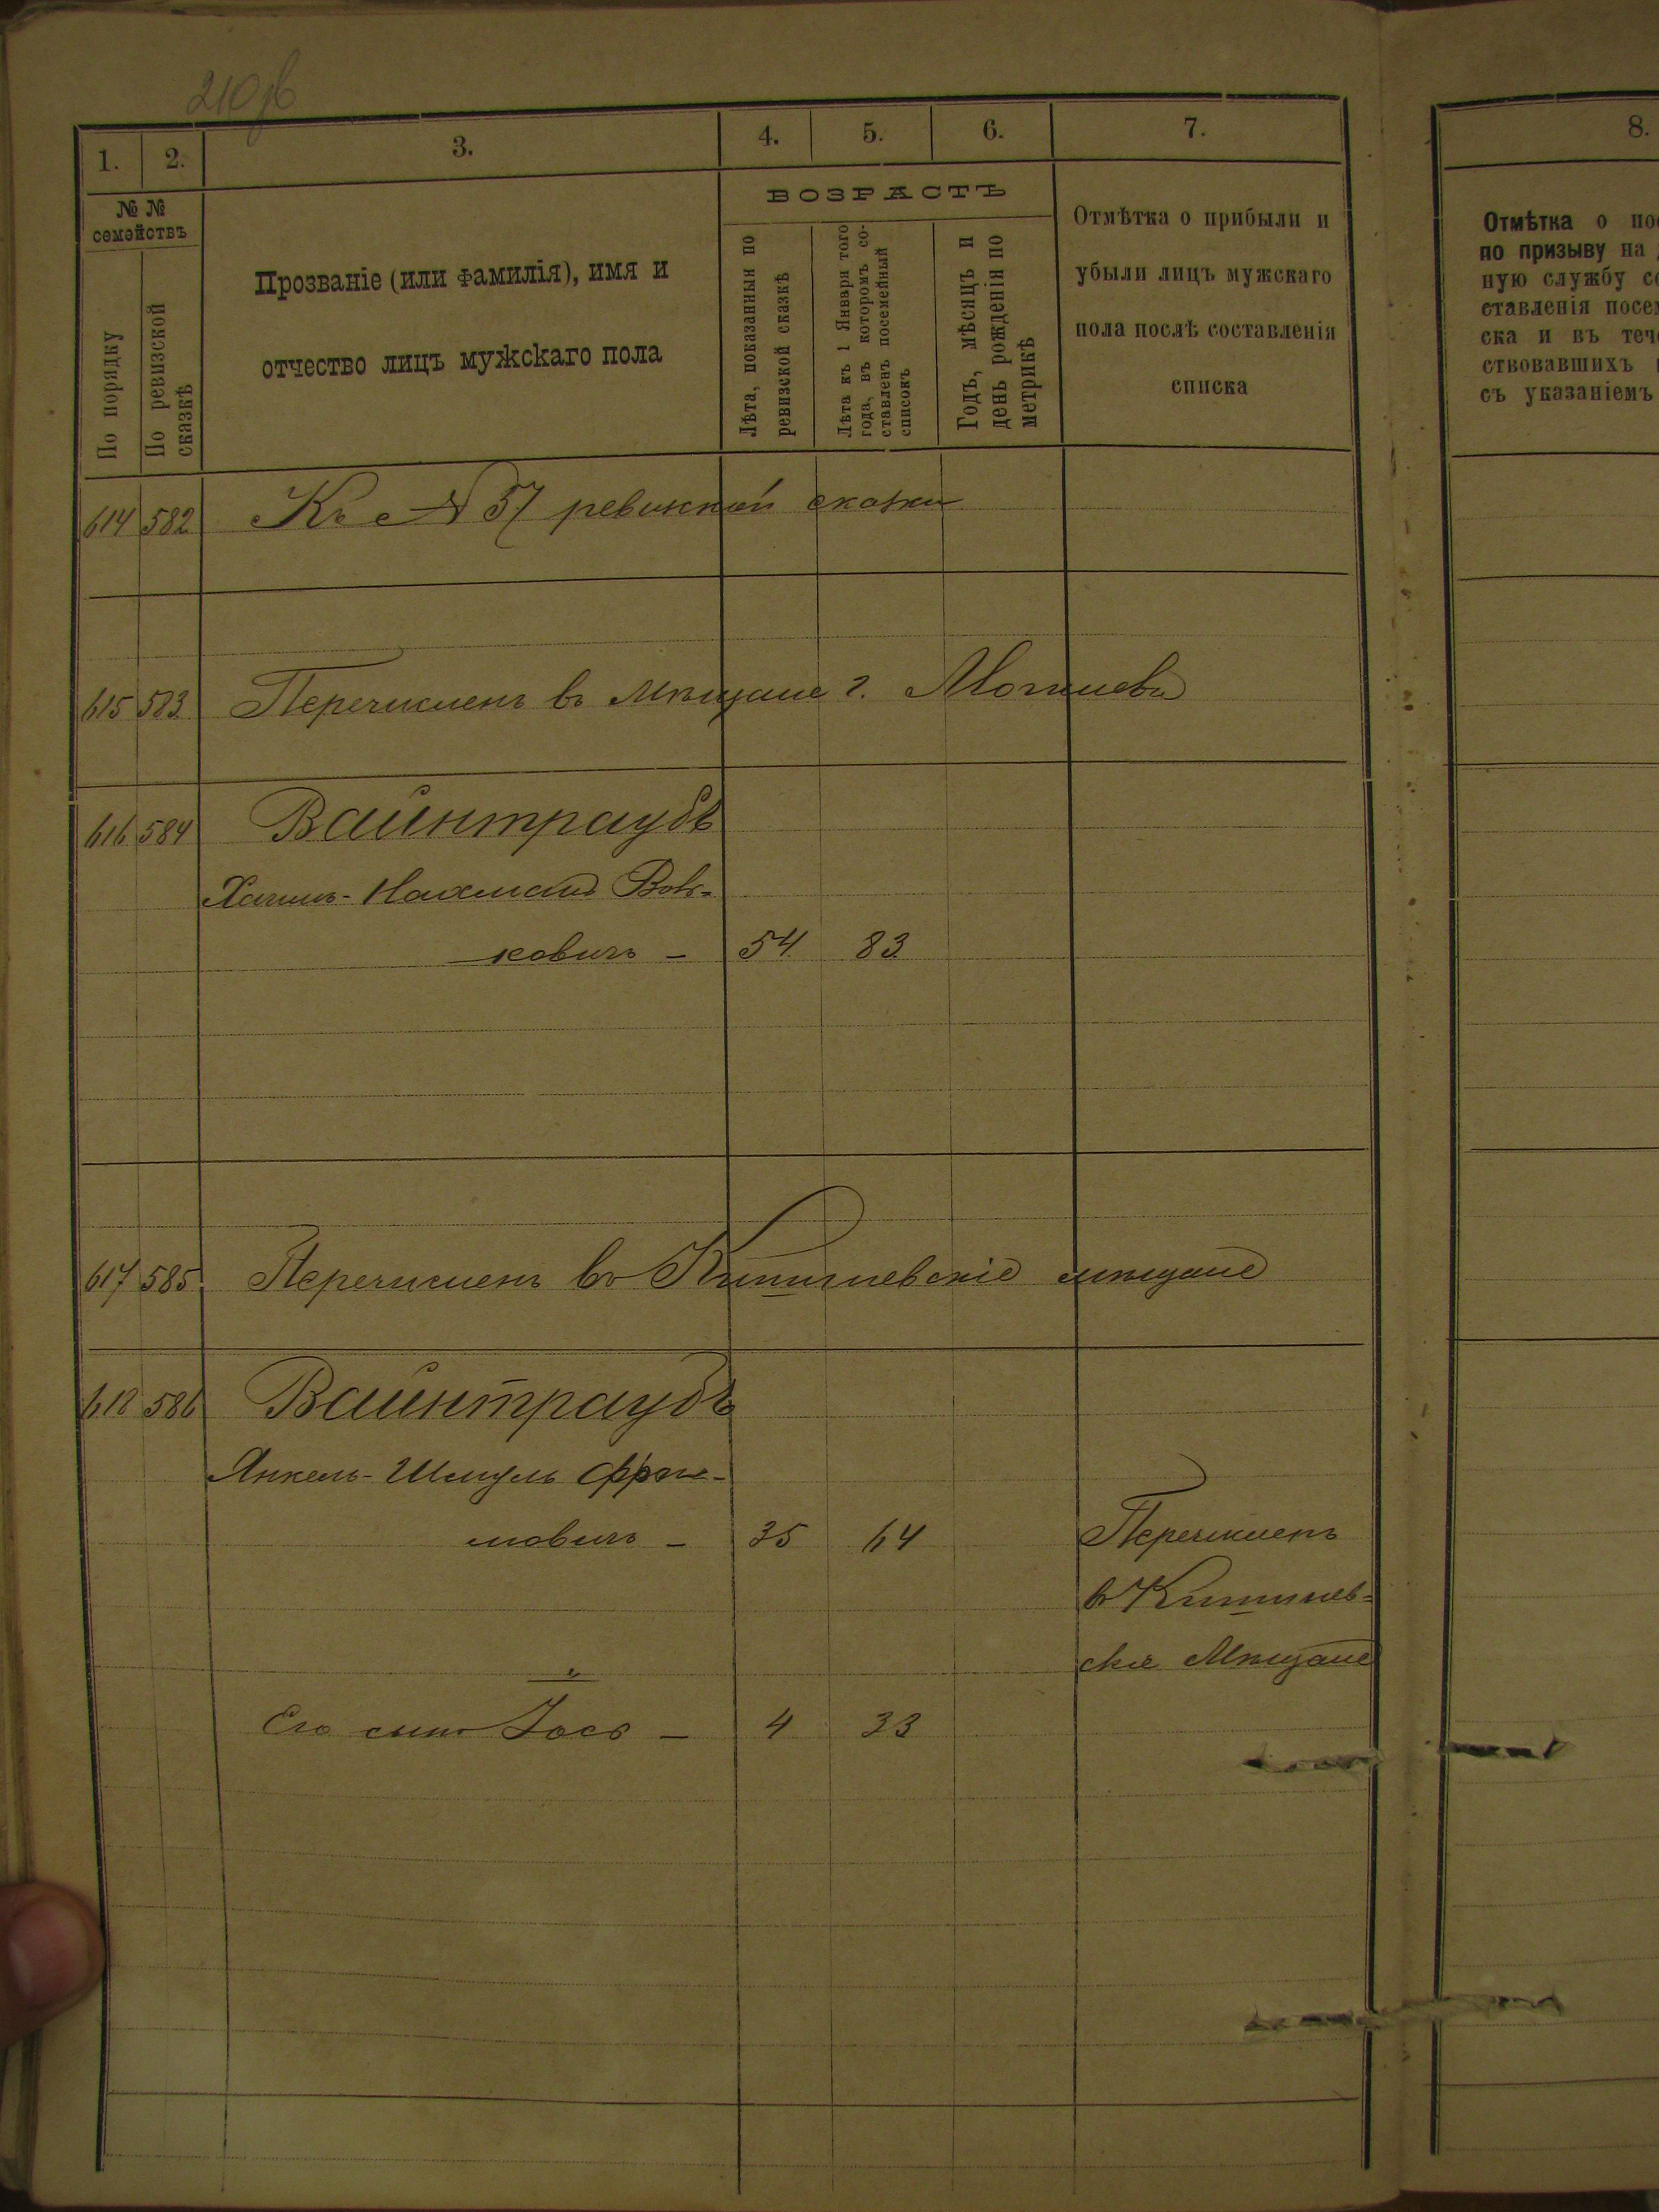 210 об
1. 2. 3. 4. 5. 6. 7.
№ № семействъ
По порядку
По ревизской сказкѣ
Прозваніе (или фамилія), имя и
отчество лицъ мужскаго пола
ВОЗРАСТЪ
Лѣта, показанныя по
ревизской сказкѣ
Лѣта къ 1 Января того
года, въ которомъ со-
ставленъ посемейный
списокъ
Годъ, мѣсяцъ и
день рожденія по
метрикѣ
Отмѣтка о прибыли и
убыли лицъ мужскаго
пола послѣ составленія
списка
614 582 Къ № 57 ревизкой сказки
615 583 Перечисленъ въ Мѣщане г. Могилева
616 584 Вайнтраубъ
Хаимъ-Нахманъ Вов-
ковичъ – 54 83
617 585 Перечисленъ въ Кишиневскіе мѣщане
618 586 Вайнтраубъ
Янкель-Шмуль Фрои-
мовичъ – 35 64 Перечисленъ
в Кишинев-
скіе Мѣщане
"
Его сынъ Іось – 4 33
8.
Отмѣтка о
по призыву на
ную службу
ставленія
ска и въ
ствовавшихъ
съ указаніемъ